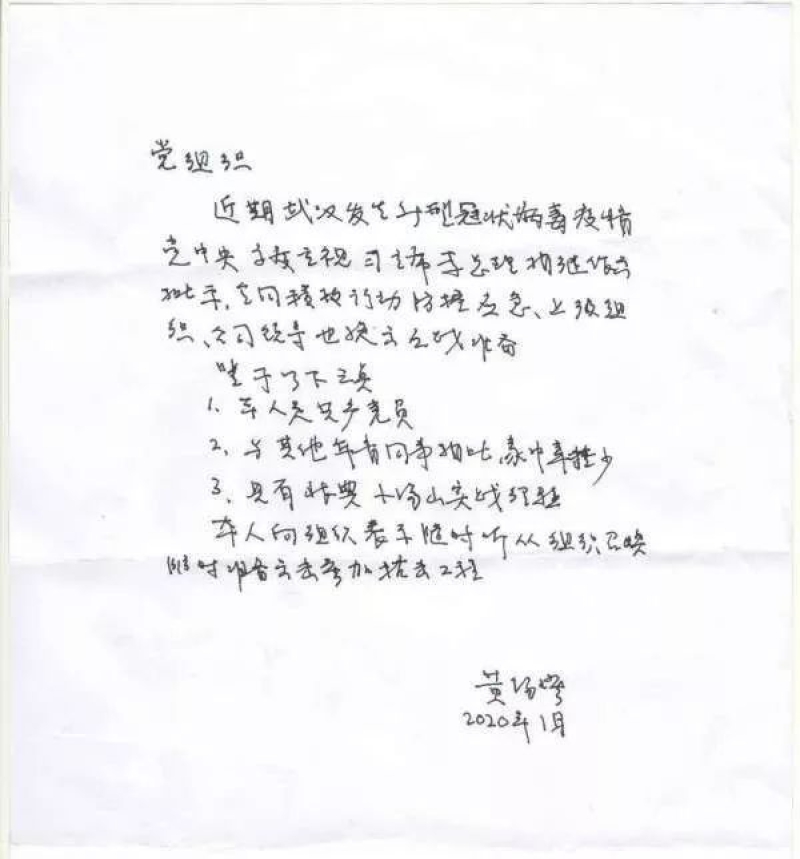 党组织
近期武汉发生新型冠状病毒疫情
党中央高度重视习主席李总理相继作出
批示,全国积极行动防控应急、上级组
织、公司领导也提出应战准备
鉴于以下三点
1、本人是共产党员
2、与其他年青同事相比,家中牵挂少
3、具有非典小汤山实战经验
本人向组织表示随时听从组织召唤
随时准备出击参加抗击工程
黄
2020年1月